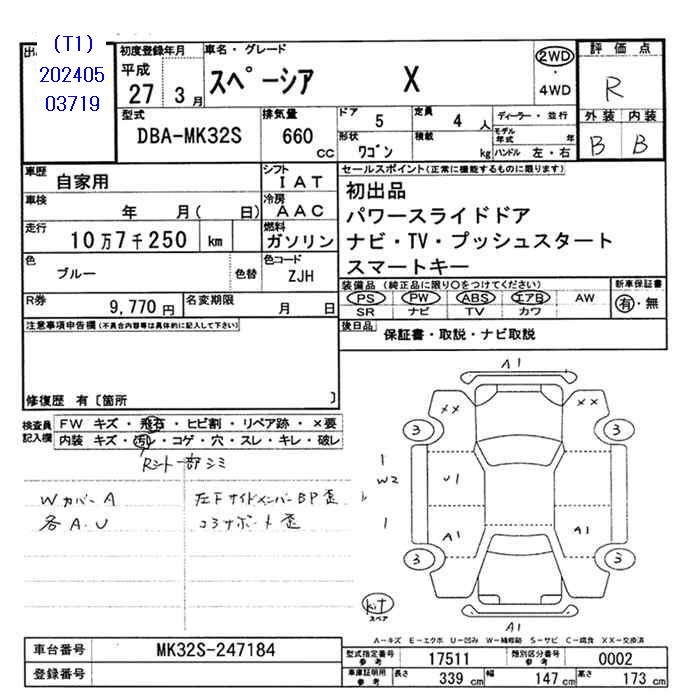 (T1)
202405
03719
初度登録年月
平成
27 3月
車名・グレード
スペーシア X
2WD
・
4WD
評価点
R
外装 内装
B B
型式
DBA-MK32S
排気量
660 cc
ドア 5
定員 4 人
ディーラー・並行
形状 ワゴン
積載 kg
モデル年式 年
ハンドル 左・右
車歴 自家用
シフト IAT
車検 年 月( 日)
冷房 AAC
走行 10万7千250 km
燃料 ガソリン
色 ブルー 色替
色コード ZJH
R券 9,770円
名変期限 月 日
セールスポイント(正常に機能するものに限ります)
初出品
パワースライドドア
ナビ・TV・プッシュスタート
スマートキー
装備品 (純正品に限り○をつけてください)
PS PW ABS エアB AW
SR ナビ TV カワ
新車保証書
有・無
後日品 保証書・取説・ナビ取説
注意事項申告欄(不具合内容等は具体的に記入して下さい)
修復歴 有〔箇所 〕
検査員記入欄
FW キズ・飛石・ヒビ割・リペア跡・×要
内装 キズ・汚れ・コゲ・穴・スレ・キレ・破レ
Rシート一部シミ
Wカバー A
各A.U
左下サイドメンバーBP歪
コアサポート歪
A1
×× ××
3 3
1
W2 U1
1 A1 A1
3 3
A1
kit
スペア
A－キズ E－エクボ U－凹み W－補修跡 S－サビ C－腐食 XX－交換済
車台番号 MK32S-247184
登録番号
型式指定番号 参考 17511
類別区分番号 参考 0002
車庫証明用 参考
長さ 339 cm 幅 147 cm 高さ 173 cm